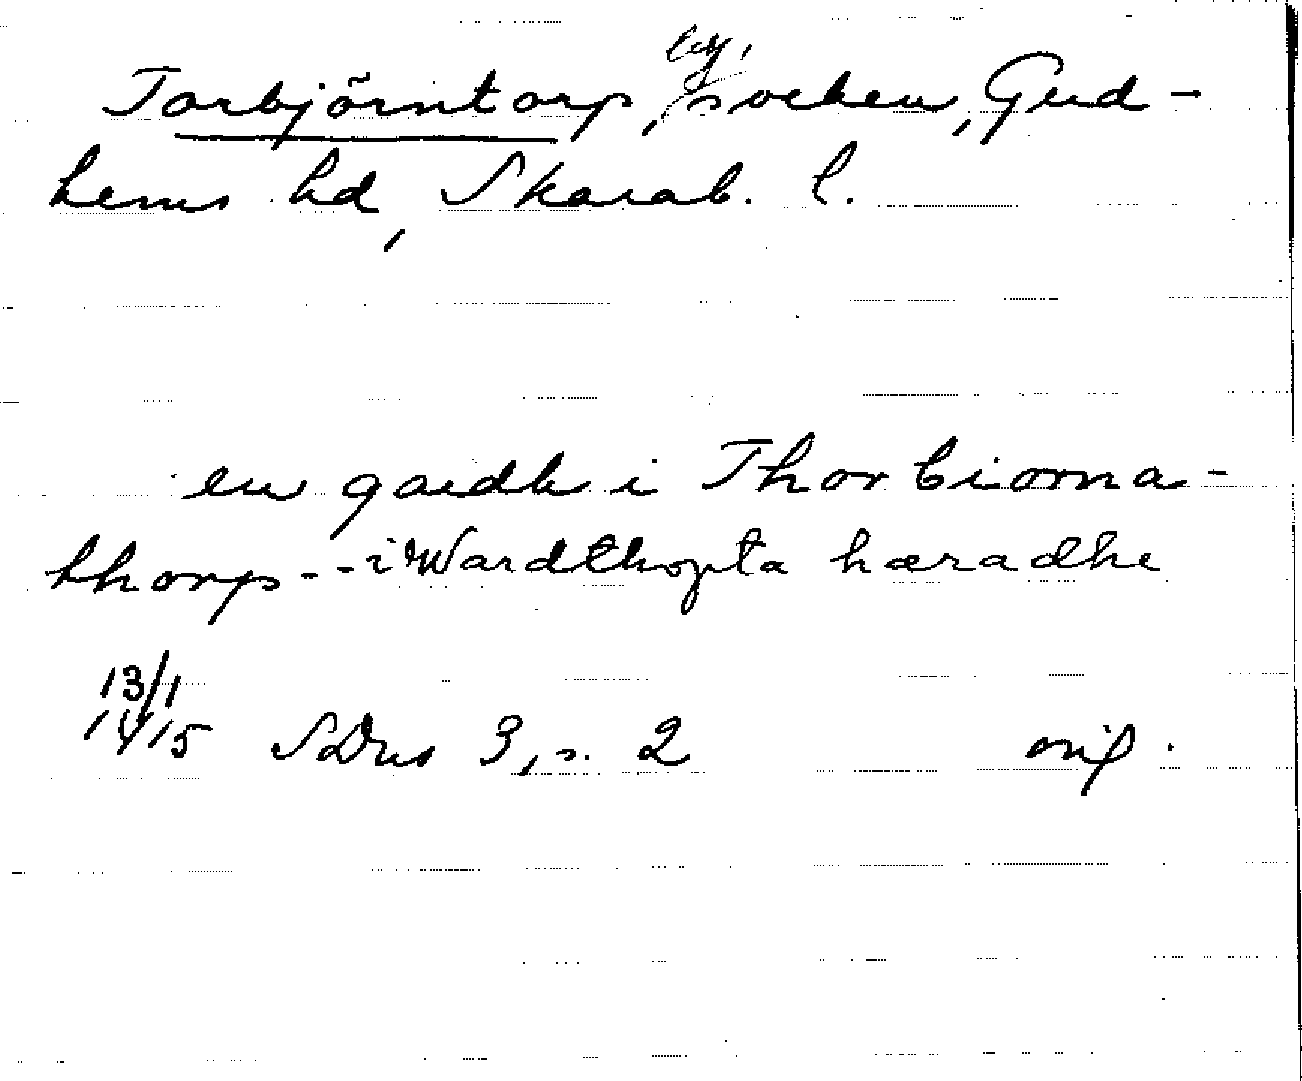 Torbjörntorp, by, socken, Gud-
hems hd, Skarab. l.
en gardh i Thorbiorna-
thorp - - i Wardthopta hæradhe
13/1
1415 SDns 3, s. 2 orig.